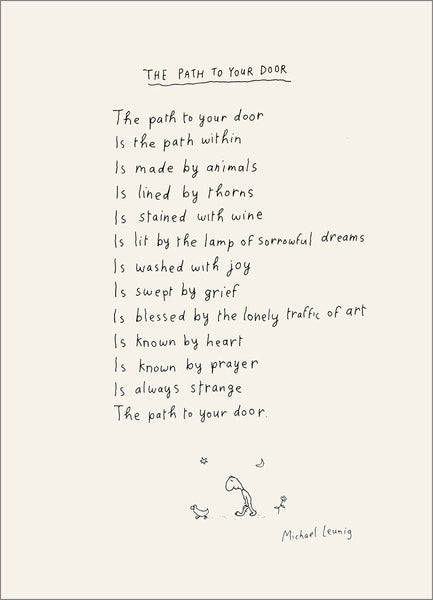 THE PATH TO YOUR DOOR
The path to your door
Is the path within
Is made by animals
Is lined by thorns
Is stained with wine
Is lit by the lamp of sorrowful dreams
Is washed with joy
Is swept by grief
Is blessed by the lonely traffic of art
Is known by heart
Is known by prayer
Is always strange
The path to your door.
Michael Leunig